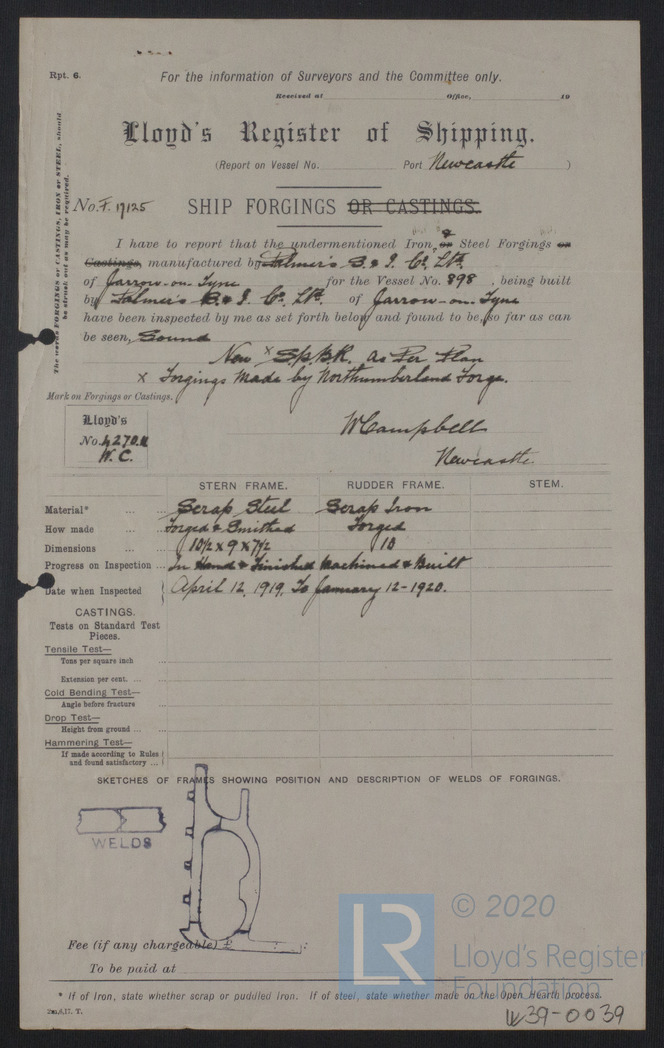 Rpt. 6.
For the information of Surveyors and the Committee only.
Received at Office, 19
Lloyd's Register of Shipping.
(Report on Vessel No. Port Newcastle )
The words FORGINGS or CASTINGS, IRON or STEEL, should be struck out as may be required.
No. F. 17125
SHIP FORGINGS OR CASTINGS.
I have to report that the undermentioned Iron, or & Steel Forgings or
Castings, manufactured by Palmer's S. & I. Co. Ltd.
of Jarrow-on-Tyne for the Vessel No. 898, being built
by Palmer's S. & I. Co. Ltd. of Jarrow-on-Tyne
have been inspected by me as set forth below and found to be, so far as can
be seen, Sound
New x Sp BK. as Per Plan
x Forgings Made by Northumberland Forge.
Mark on Forgings or Castings.
Lloyd's
No. 4270
W. C.
W Campbell
Newcastle.
STERN FRAME. RUDDER FRAME. STEM.
Material* ... ... Scrap Steel Scrap Iron
How made ... ... Forged & Smithed Forged
Dimensions ... ... 10½ x 9 x 7½ 10
Progress on Inspection ... In Hand & Finished Machined & Built
Date when Inspected April 12, 1919, To January 12-1920.
CASTINGS.
Tests on Standard Test
Pieces.
Tensile Test—
Tons per square inch
Extension per cent. ... ...
Cold Bending Test—
Angle before fracture
Drop Test—
Height from ground ... ...
Hammering Test—
If made according to Rules
and found satisfactory ...
SKETCHES OF FRAMES SHOWING POSITION AND DESCRIPTION OF WELDS OF FORGINGS.
WELDS
Fee (if any chargeable) £
To be paid at
* If of Iron, state whether scrap or puddled iron. If of steel, state whether made on the Open Hearth process.
2m.9.17. T.
LR
© 2020
Lloyd's Register
Foundation
W39-0039